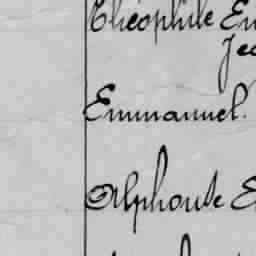 Théophile Em
Jea
Emmanuel.
Alphonse E